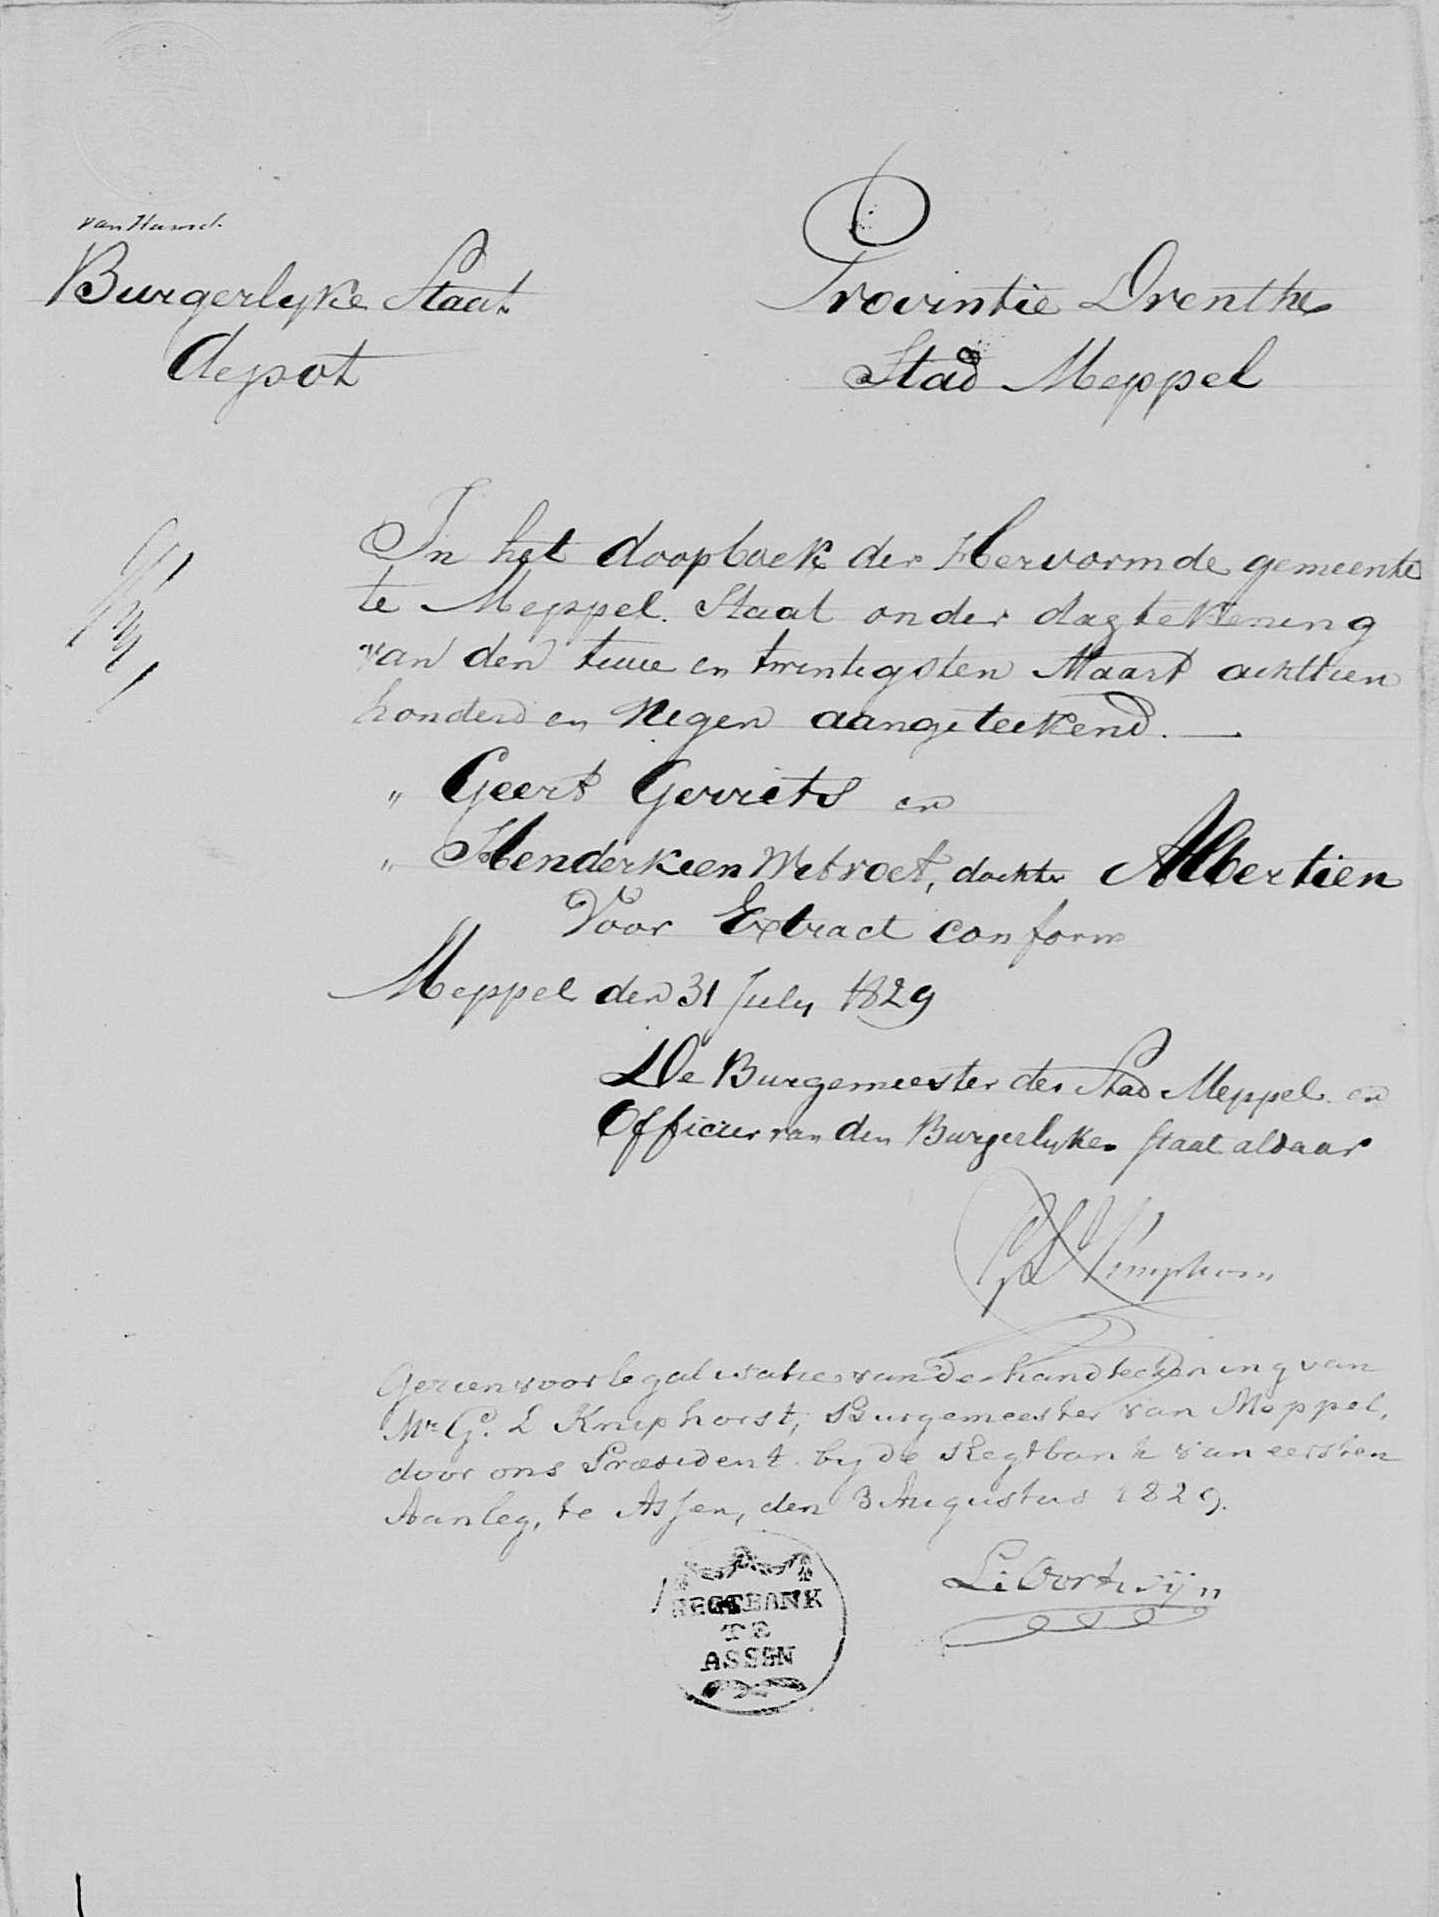 Burgerlyke Staat
depot
Provintie Drenthe
Stad Meppel
In het doopboek der Hervormde gemeente
te Meppel. Staat onder dagtekening
van den twee en twintigsten Maart achttien
honderd en Negen aangeteekend. —
„ Geert Gerrits en
„ Henderkien Witvoet, dochter Albertien
Voor Extract conform
Meppel den 31 July 1829
De Burgemeester der Stad Meppel en
Officier van den Burgerlyken staat aldaar
Gezien voor legalisatie van de handteekening van
Mr G. L Kniphorst, Burgemeester van Meppel,
door ons Præsident by de Regtbank van eersten
Aanleg, te Assen, den 3 Augustus 1829.
L: Oortwijn
REGTBANK
TE
ASSEN